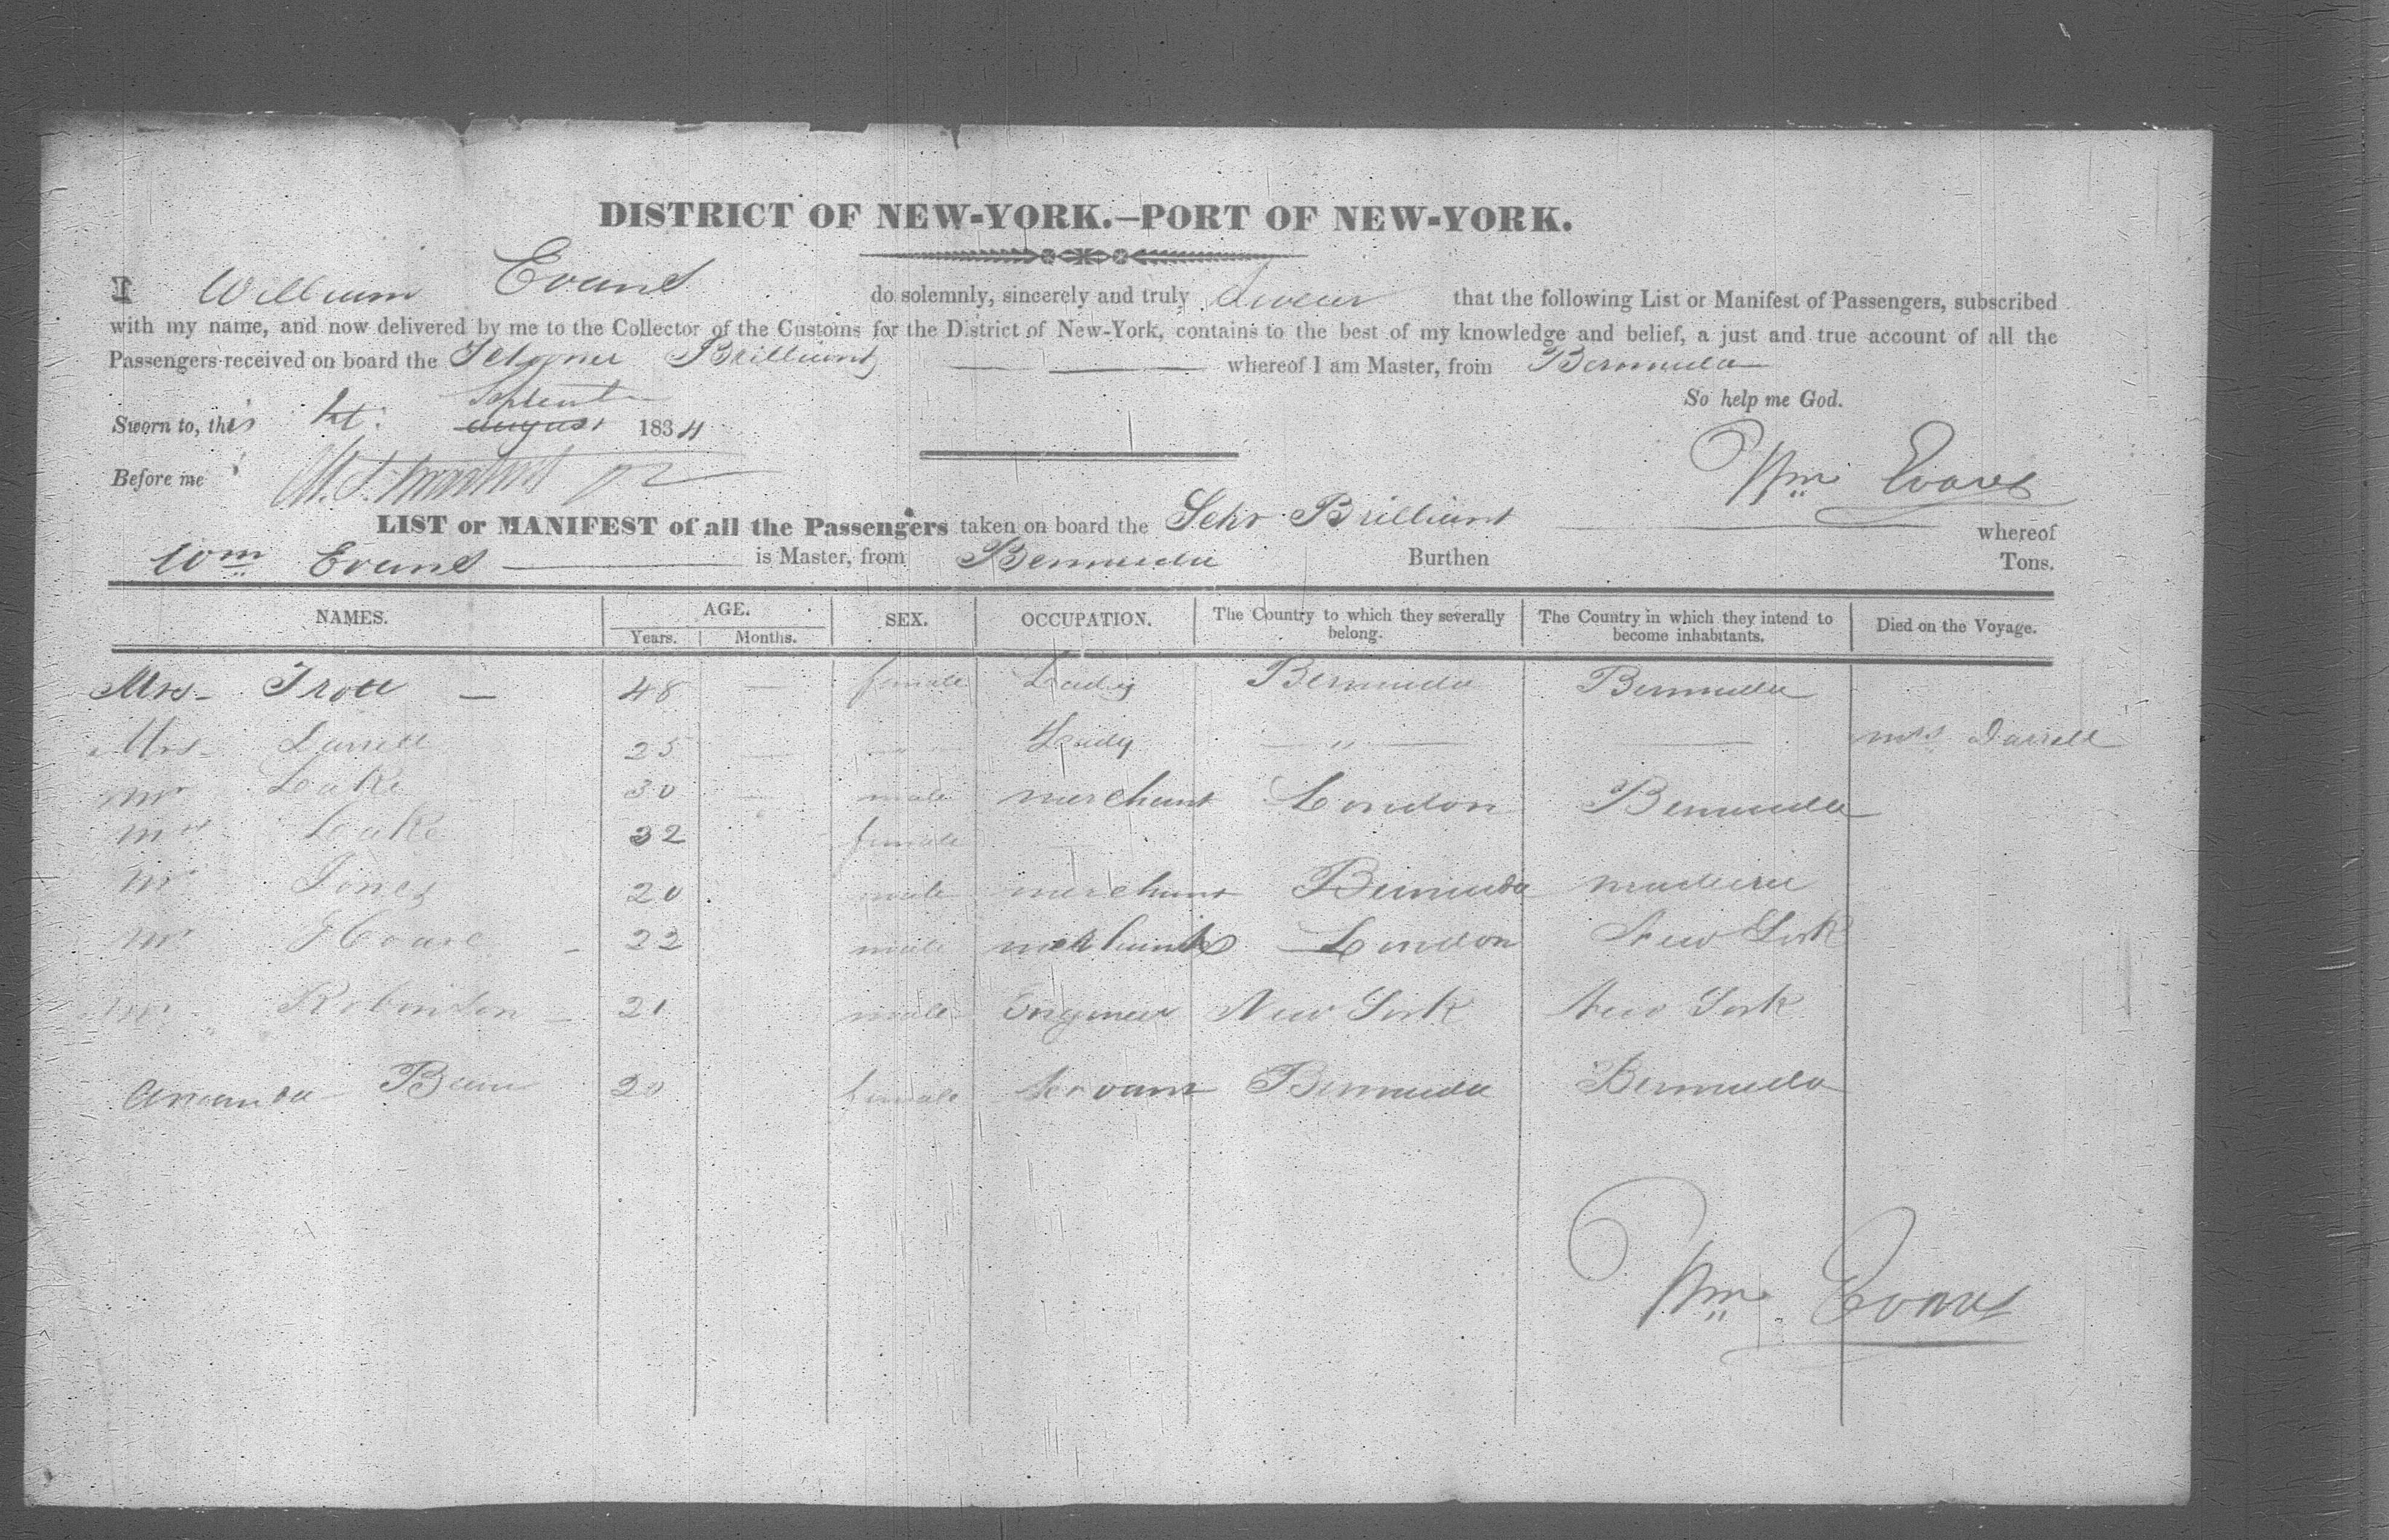 DISTRICT OF NEW-YORK.—PORT OF NEW-YORK.
I William Evans do solemnly, sincerely and truly Swear that the following List or Manifest of Passengers, subscribed
with my name, and now delivered by me to the Collector of the Customs for the District of New-York, contains to the best of my knowledge and belief, a just and true account of all the
Passengers received on board the Schooner Brilliant whereof I am Master, from Bermuda
So help me God.
Septemr
Sworn to, this 1st august 1834
Wm Evans
Before me
LIST or MANIFEST of all the Passengers taken on board the Schr Brilliant whereof
Wm Evans is Master, from Bermuda Burthen Tons.
NAMES. AGE. SEX. OCCUPATION. The Country to which they severally belong. The Country in which they intend to become inhabitants. Died on the Voyage.
Years. Months.
Mrs Trott — 48 — female Lady Bermuda Bermuda
Mrs Darrell 25 — " Lady — " — — mrs Darrell
mr Loake 30 — male merchant London Bermuda
mrs Loake 32 female
mr Jones 20 male merchant Bermuda madeira
mr Hoare - 22 male merchant London New York
mr Robinson - 21 male Engineer New York New York
Amanda Bean 20 female Servant Bermuda Bermuda
Wm Evans